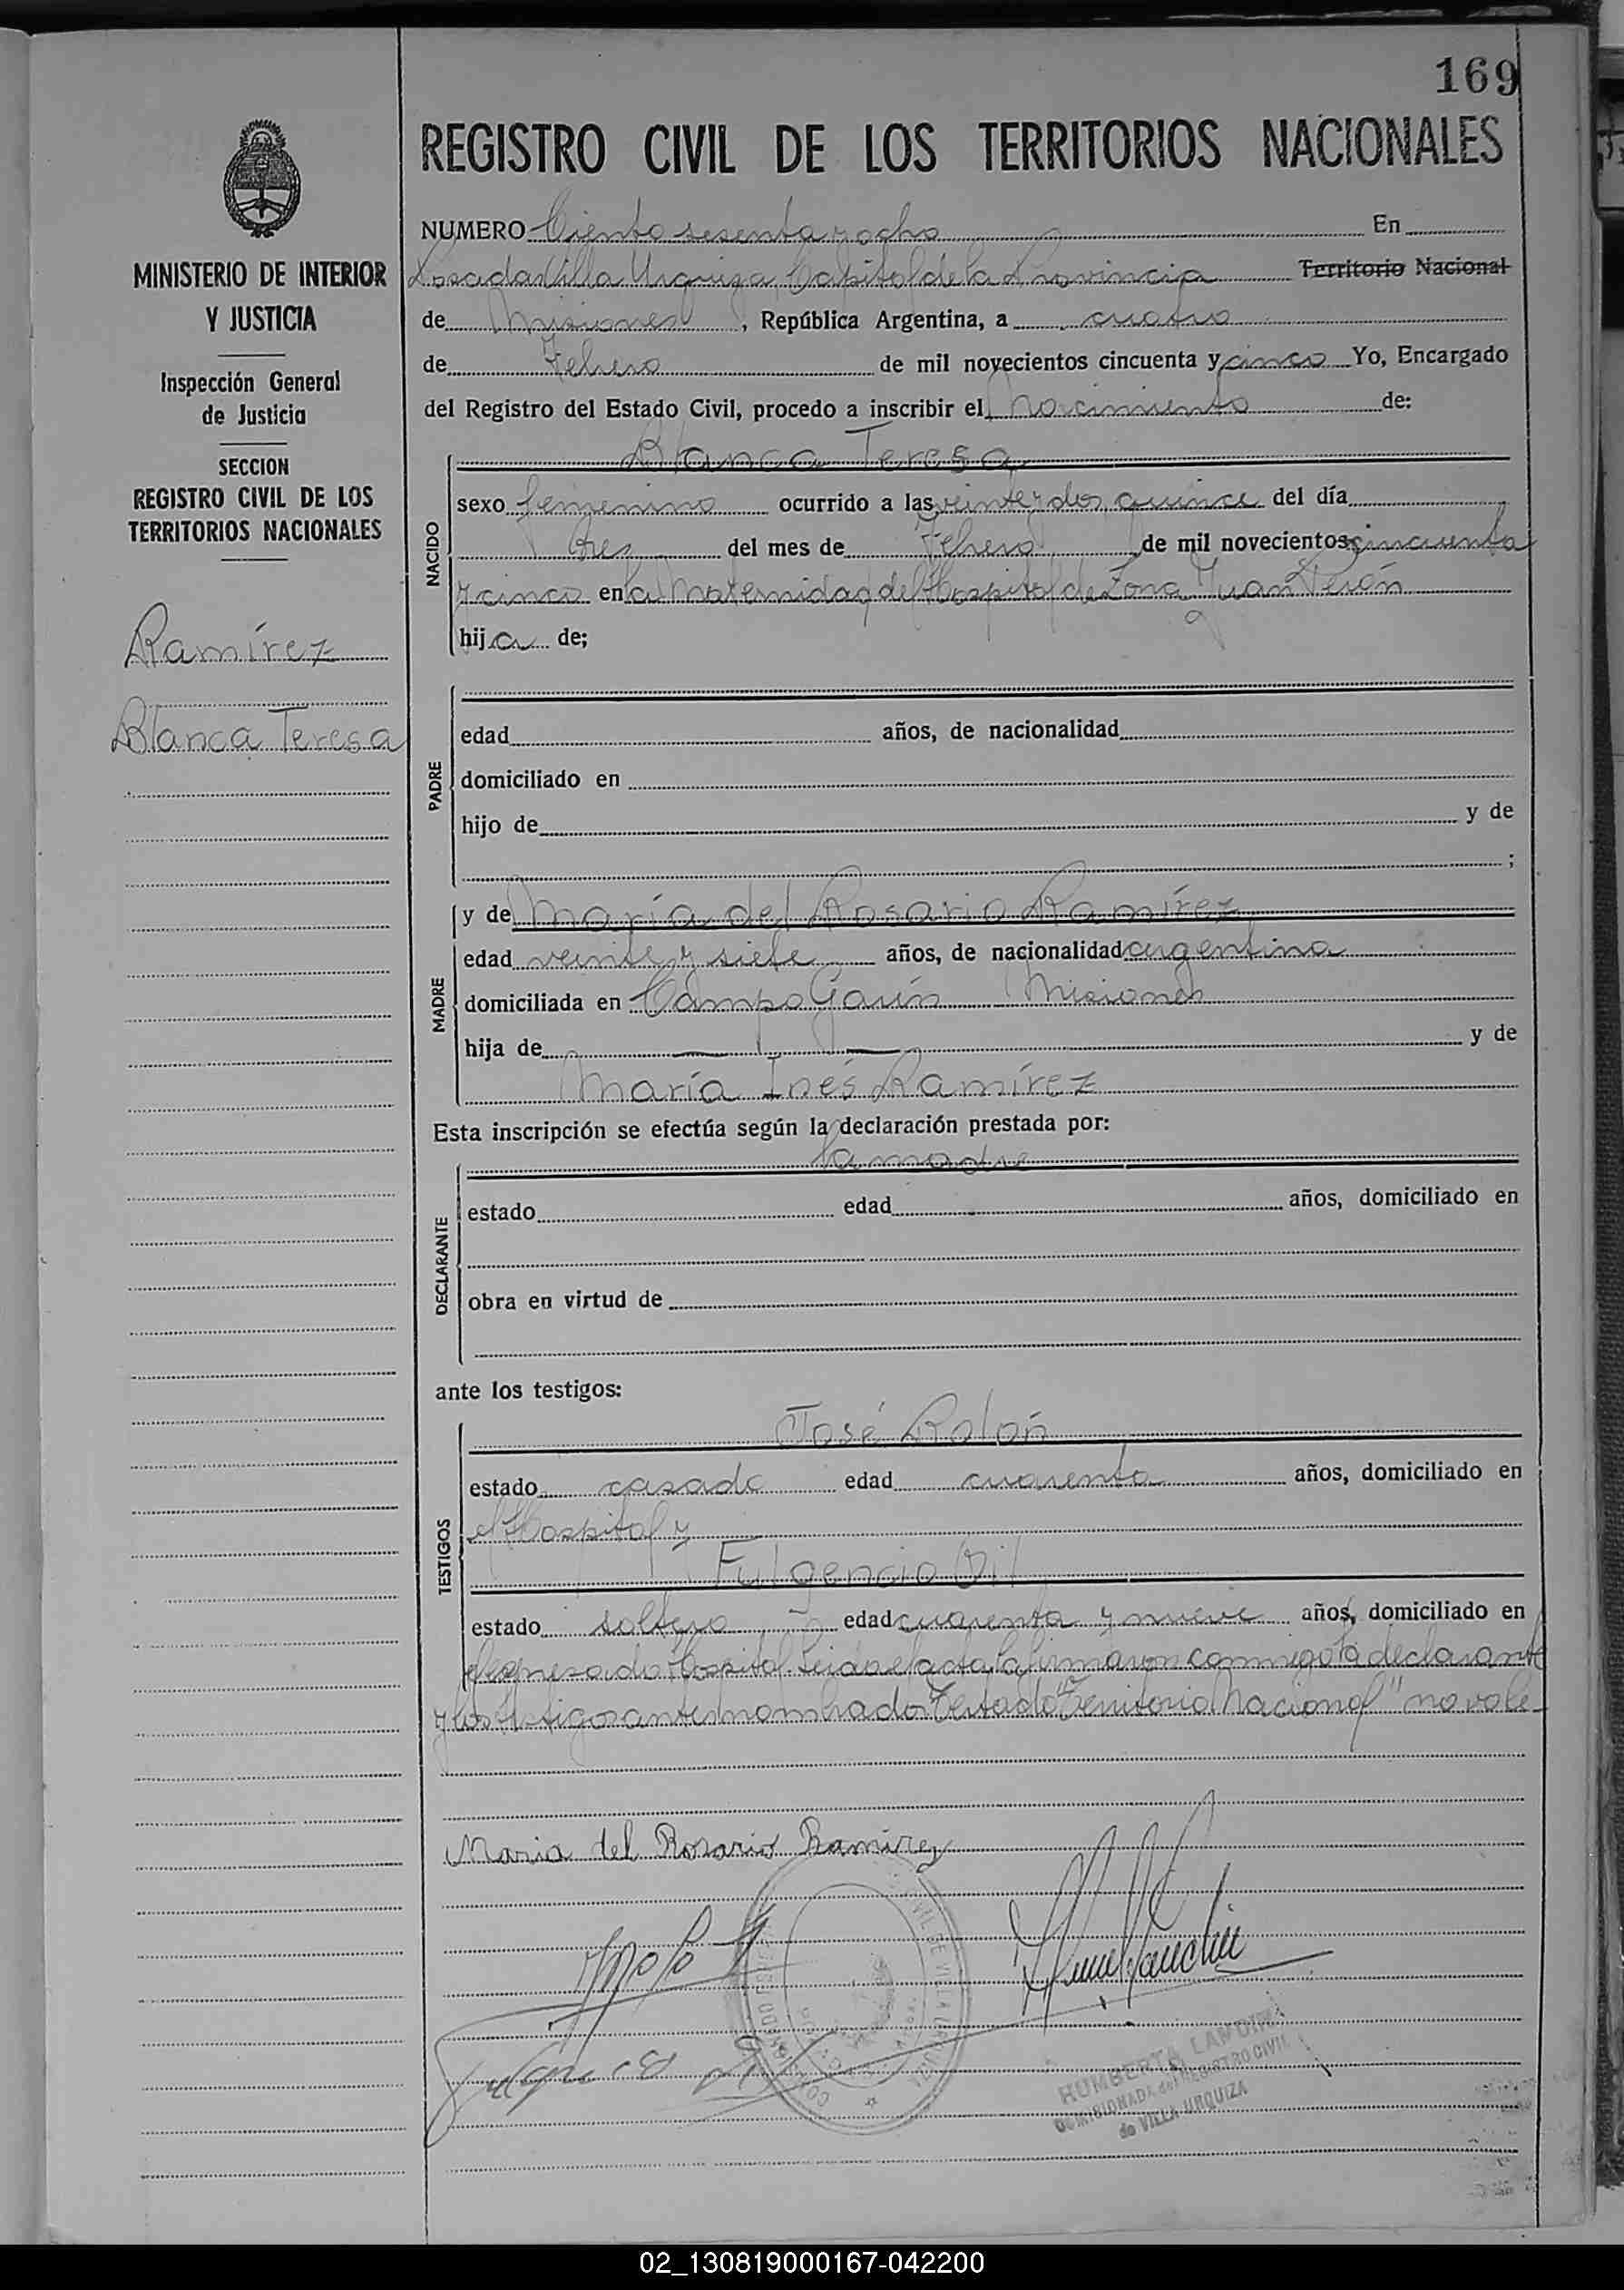 169
REGISTRO CIVIL DE LOS TERRITORIOS NACIONALES
MINISTERIO DE INTERIOR
Y JUSTICIA
Inspección General
de Justicia
SECCION
REGISTRO CIVIL DE LOS
TERRITORIOS NACIONALES
Ramírez
Blanca Teresa
NUMERO Ciento sesenta y ocho En
Posadas Villa Urquiza, Capital de la Provincia Territorio Nacional
de Misiones, República Argentina, a cuatro
de Febrero de mil novecientos cincuenta y cinco Yo, Encargado
del Registro del Estado Civil, procedo a inscribir el Nacimiento de:
NACIDO
Blanca Teresa
sexo femenino ocurrido a las veintidos, quince del día
tres del mes de Febrero de mil novecientos cincuenta
y cinco en la Maternidad del Hospital de Zona Juan Perón
hija de;
PADRE
edad años, de nacionalidad
domiciliado en
hijo de y de
;
MADRE
y de María del Rosario Ramírez
edad veinte y siete años, de nacionalidad argentina
domiciliada en Campo Garín Misiones
hija de y de
María Inés Ramírez
Esta inscripción se efectúa según la declaración prestada por:
DECLARANTE
la madre
estado edad años, domiciliado en
obra en virtud de
ante los testigos:
TESTIGOS
José Rolón
estado casado edad cuarenta años, domiciliado en
el Hospital y
Fulgencio Gil
estado soltero edad cuarenta y nueve años, domiciliado en
el expresado Hospital. Leida el acta, la firmaron conmigo la declarante
y los testigos antes nombrados Testado "Territorio Nacional" no vale
Maria del Rosario Ramirez
HUMBERTA LANDINI
COMISIONADA del REGISTRO CIVIL
de VILLA URQUIZA
02_130819000167-042200